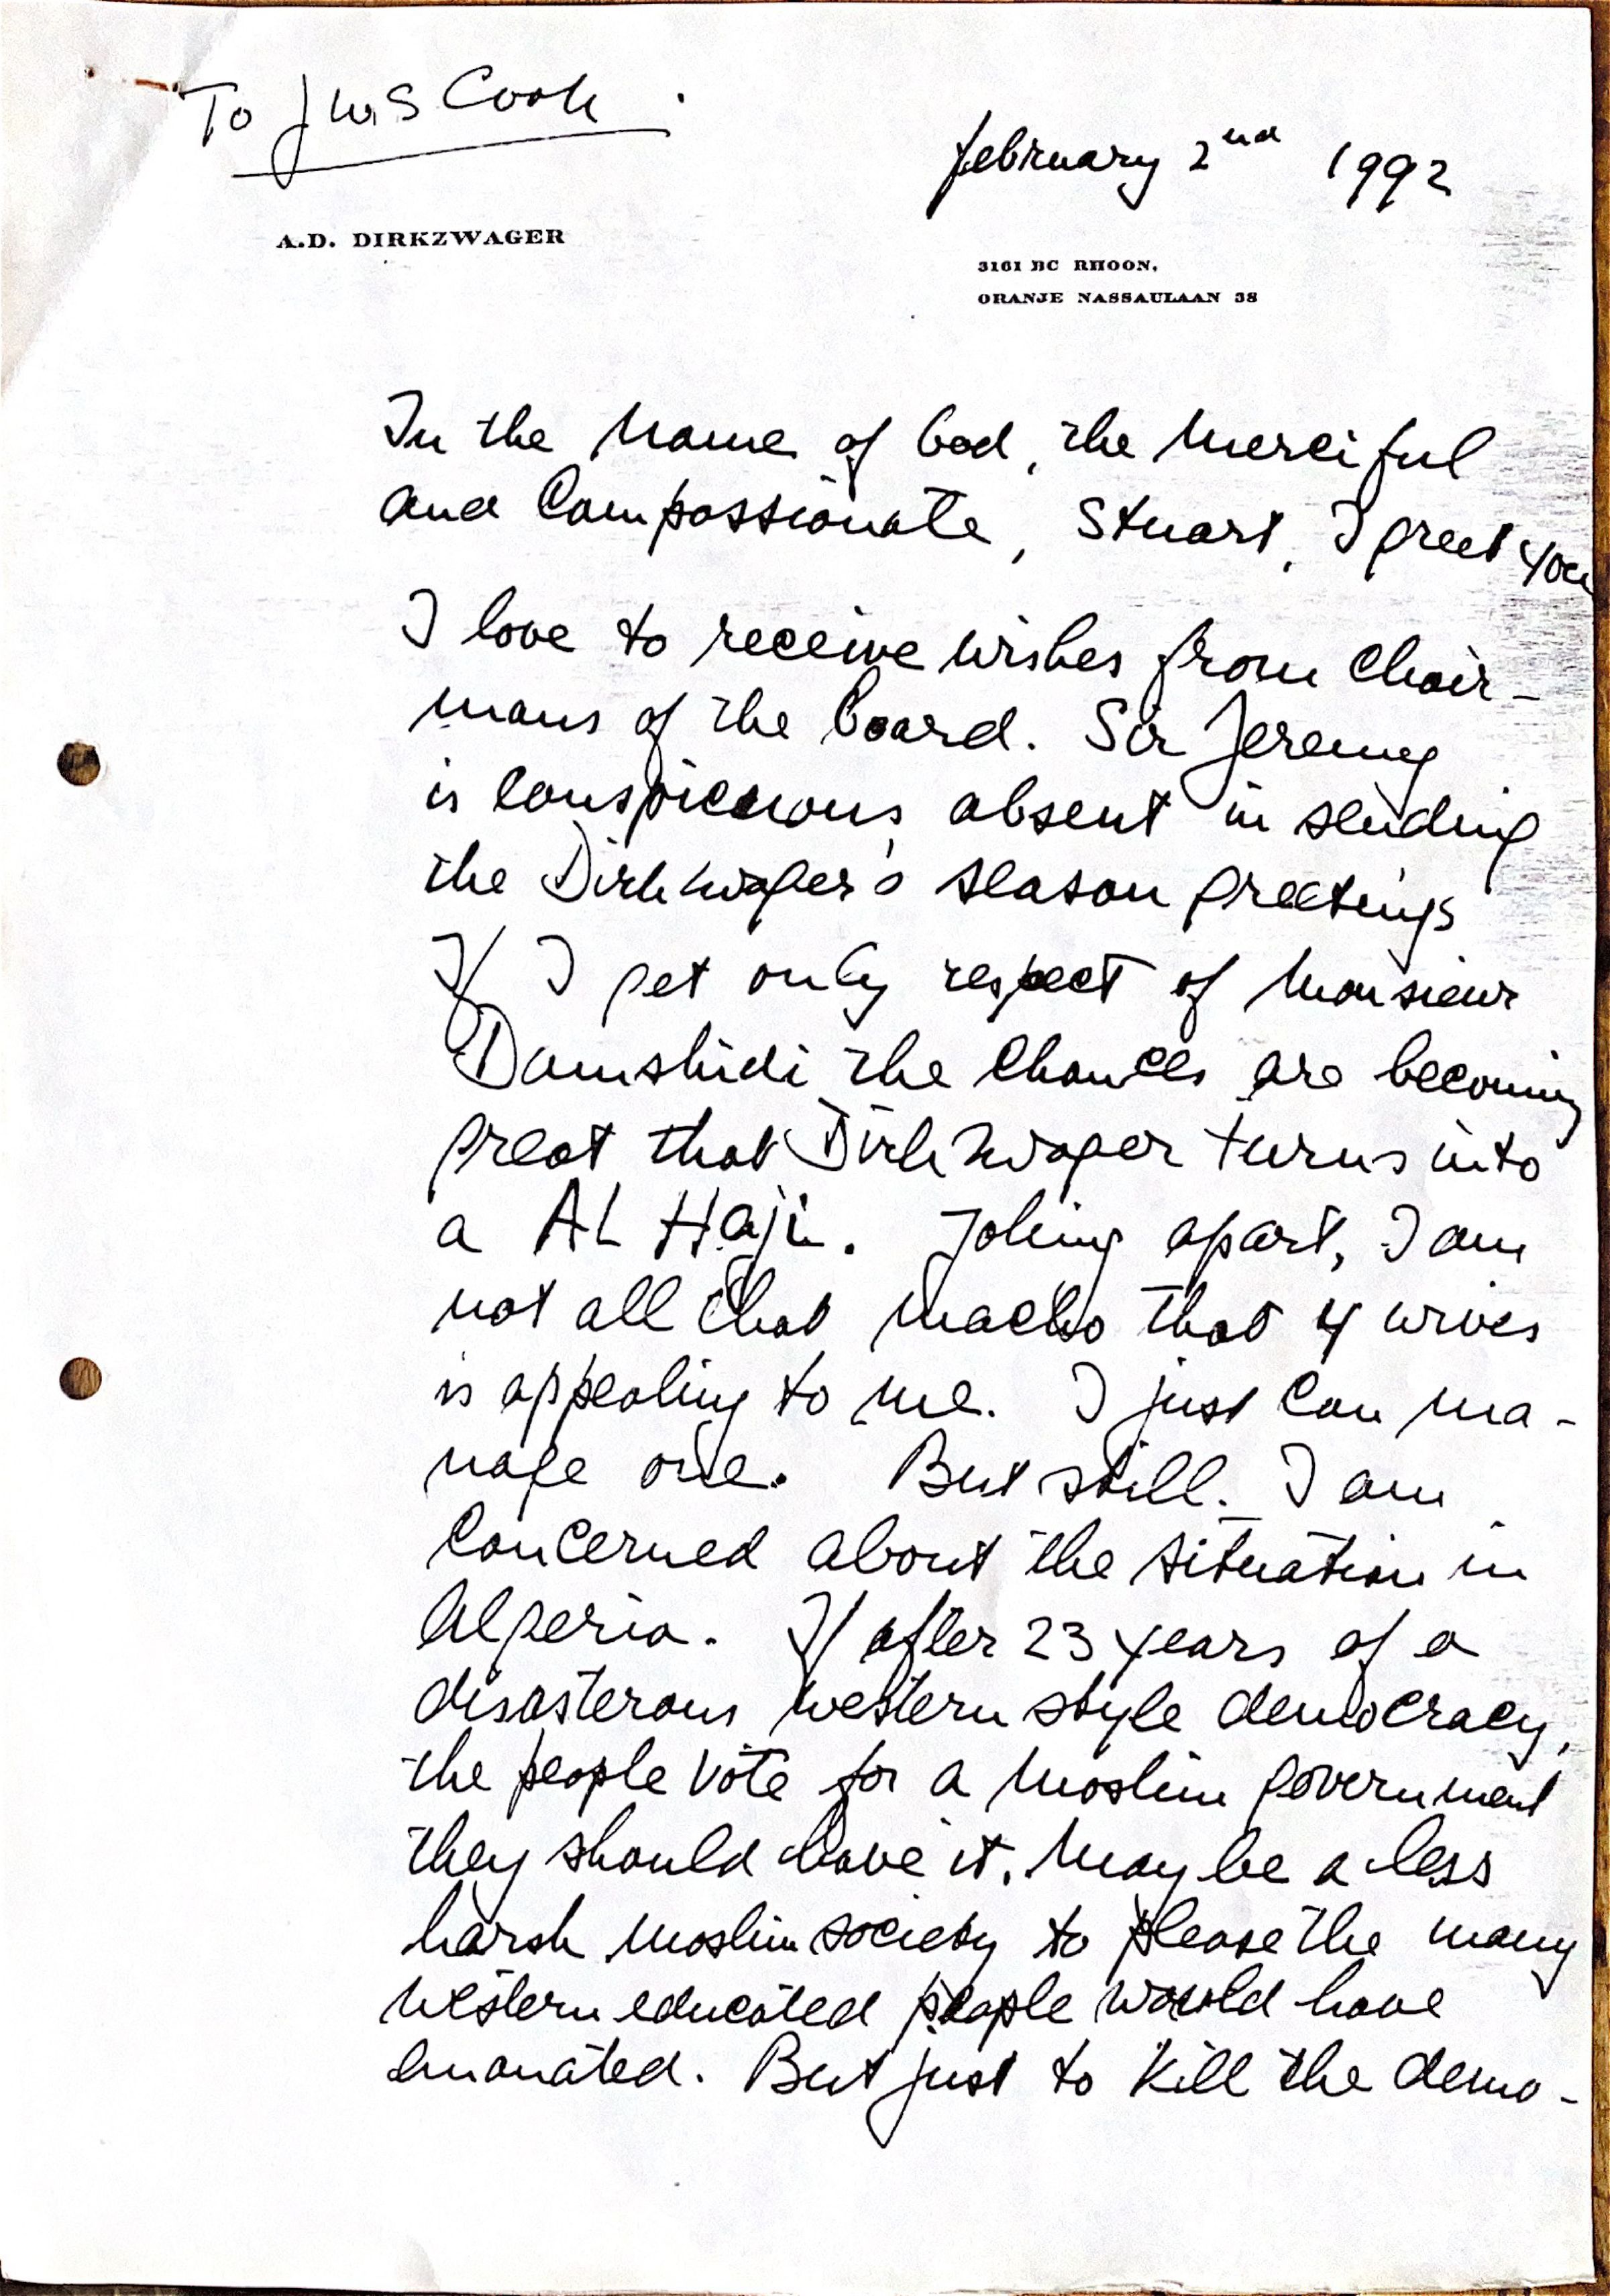 To J W S Cook.
february 2nd 1992
A.D. DIRKZWAGER
3161 BC RHOON,
ORANJE NASSAULAAN 38
In the Name of God, the Merciful
and Compassionate, Stuart, I greet you
I love to receive wishes from Chair-
mans of the board. Sir Jeremy
is conspicuous absent in sending
the Dirkzwager's season greetings
If I get only respect of Monsieur
Damshidi the chances are becoming
great that Dirkzwager turns into
a AL Haji. Joking apart, I am
not all that macho that 4 wives
is appealing to me. I just can ma-
nage one. But still. I am
concerned about the situation in
Algeria. If after 23 years of a
disasterous western style democracy,
the people vote for a Moslim government
they should have it. May be a less
harsh Moslim society to please the many
western educated people would have
emanated. But just to kill the demo-